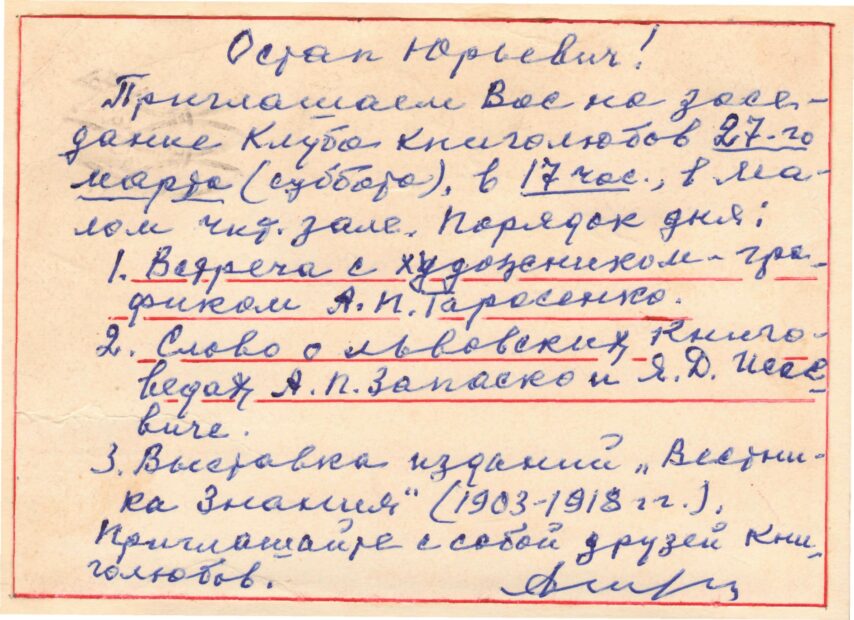 Остап Юрьевич!
Приглашаем Вас на засе-
дание Клуба книголюбов 27-го
марта (суббота), в 17 час., в Ма-
лом чит. зале. Порядок дня:
1. Встреча с художником-гра-
фиком А.П. Тарасенко.
2. Слово о львовских книго-
ведах А.П. Запаско и Я.Д. Исае-
виче.
3. Выставка изданий „Вестни-
ка Знания" (1903-1918 гг.).
Приглашайте с собой друзей кни-
голюбов.